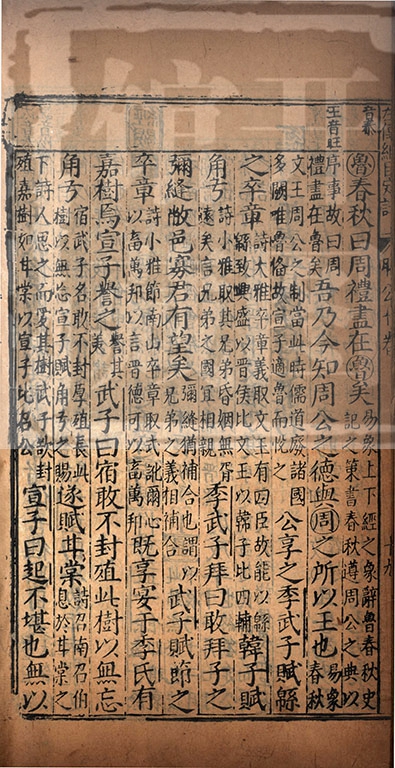 王音旺
魯春秋曰周禮盡在魯矣
易象上下經之象辭魯春秋史
記之策書春秋遵周公之典以
序事故曰周
禮盡在魯矣
吾乃今知周公之德與周之所以王也
易象
春秋
文王周公之制當此時儒道廢諸國
多闕唯魯備故宣子適魯而悅之
公享之季武子賦緜
之卒章
詩大雅卒章義取文王有四臣故能以緜
緜致興盛以晉侯比文王以韓子比四輔
韓子賦
角弓
詩小雅取其兄弟昏姻無胥
遠矣言兄弟之國宜相親
季武子拜曰敢拜子之
彌縫敝邑寡君有望矣
彌縫猶補合也謂以
兄弟之義相補合
武子賦節之
卒章
詩小雅節南山卒章取式訛爾心
以畜萬邦以言晉德可以畜萬邦
既享宴于季氏有
嘉樹焉宣子譽之
譽其
美
武子曰宿敢不封殖此樹以無忘
角弓
宿武子名敢不封厚殖長此
樹以無忘宣子賦角弓之賜
遂賦甘棠
詩召南召伯
息於甘棠之
下詩人思之而愛其樹武子欲封
殖嘉樹如甘棠以宣子比召公
宣子曰起不堪也無以